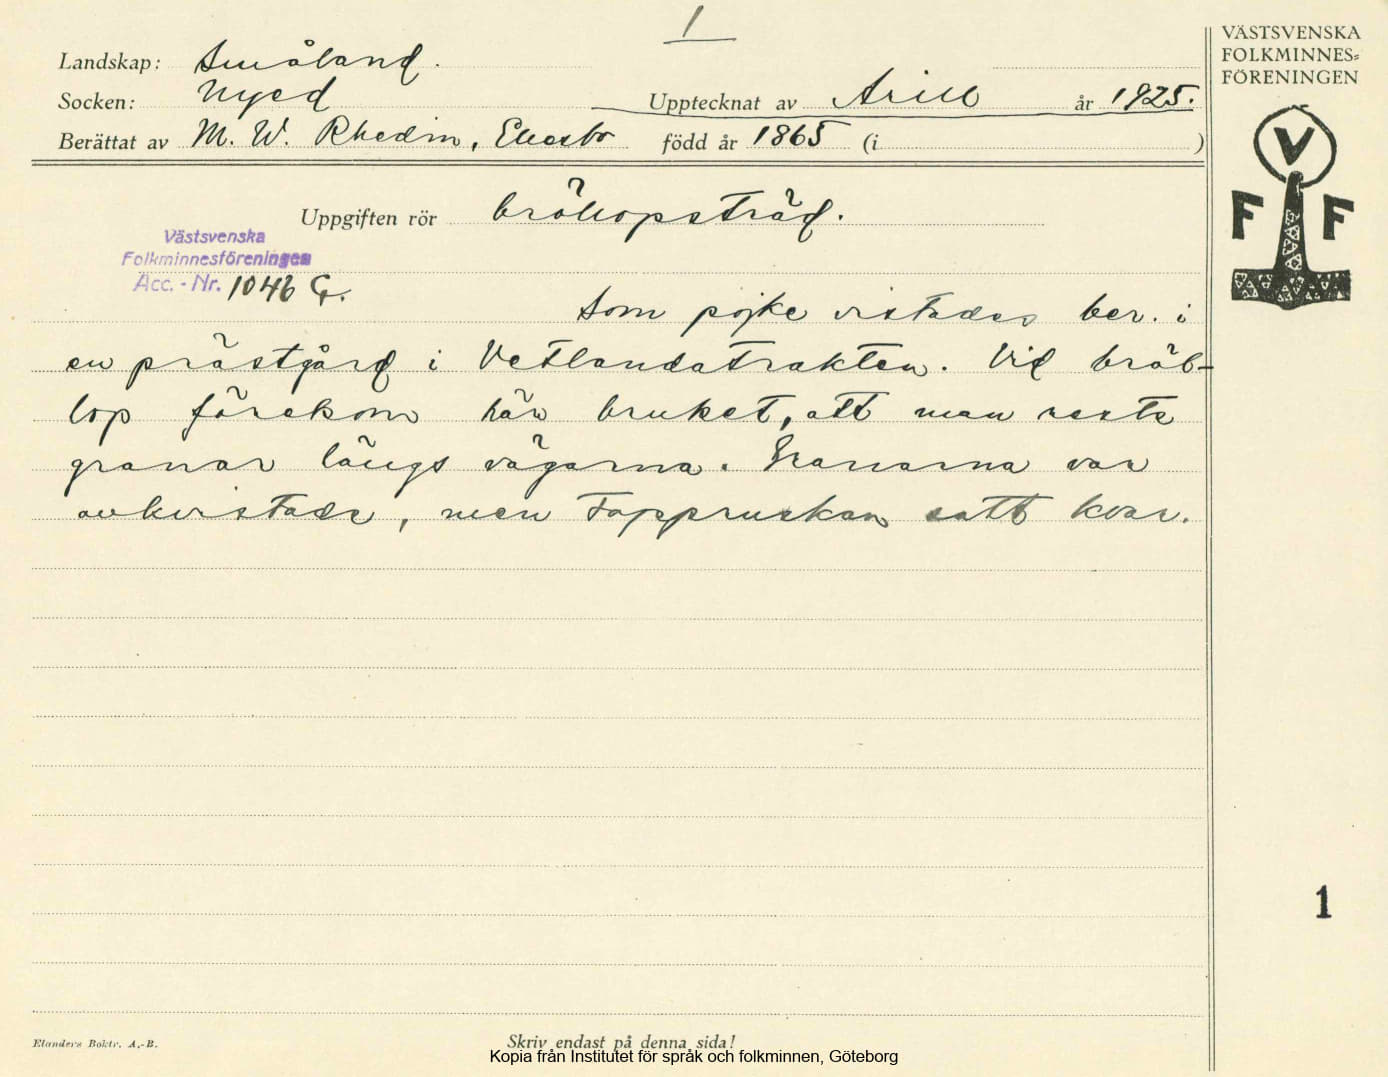 1
VÄSTSVENSKA
FOLKMINNES=
FÖRENINGEN
Landskap: Småland.
Socken: Nyed
Upptecknat av Arill år 1925.
Berättat av M. W. Rhedin, född år 1865 (i )
V
F F
Uppgiften rör bröllopsträd.
Västsvenska
Folkminnesföreningen
Acc. - Nr. 1046 G.
Som pojke vistades ber. i
en prästgård i Vetlandatrakten. Vid bröl-
lop förekom här bruket, att man reste
granar längs vägarna. Granarna var
avkvistade, men toppruskan satt kvar.
1
Elanders Boktr. A.-B.
Skriv endast på denna sida!
Kopia från Institutet för språk och folkminnen, Göteborg